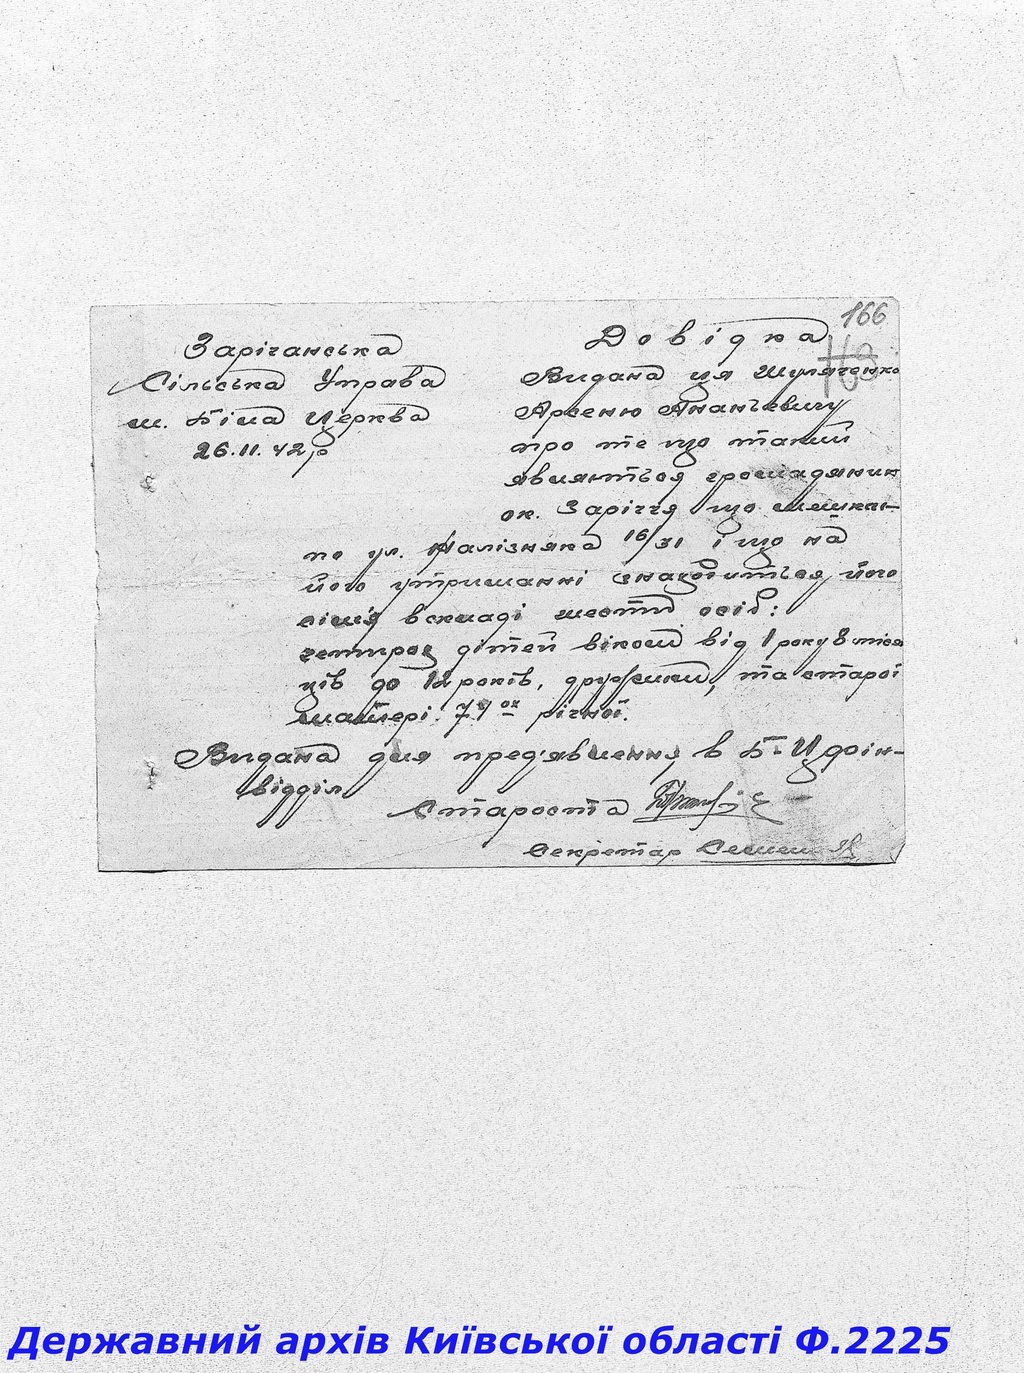 166
Зарічанська
Сільська Управа
м. Біла Церква
26.11.42 р
Довідка
Видана ця Шуляченко
Арсеню Ананьевичу
про те що такий
являється громадянин
ок. Заріччя що мешкає
по ул. Залізняка 16/31 і що на
його утриманні знаходиться його
сім'я вскладі шести осіб:
четирох дітей віком від 1 року 8 міся
ців до 12 років, дружини, та старої
матері 74 ох річної.
Видана для пред'явлення в Б-Ц фін-
відділ
Староста
Секретар
Державний архів Київської області Ф.2225